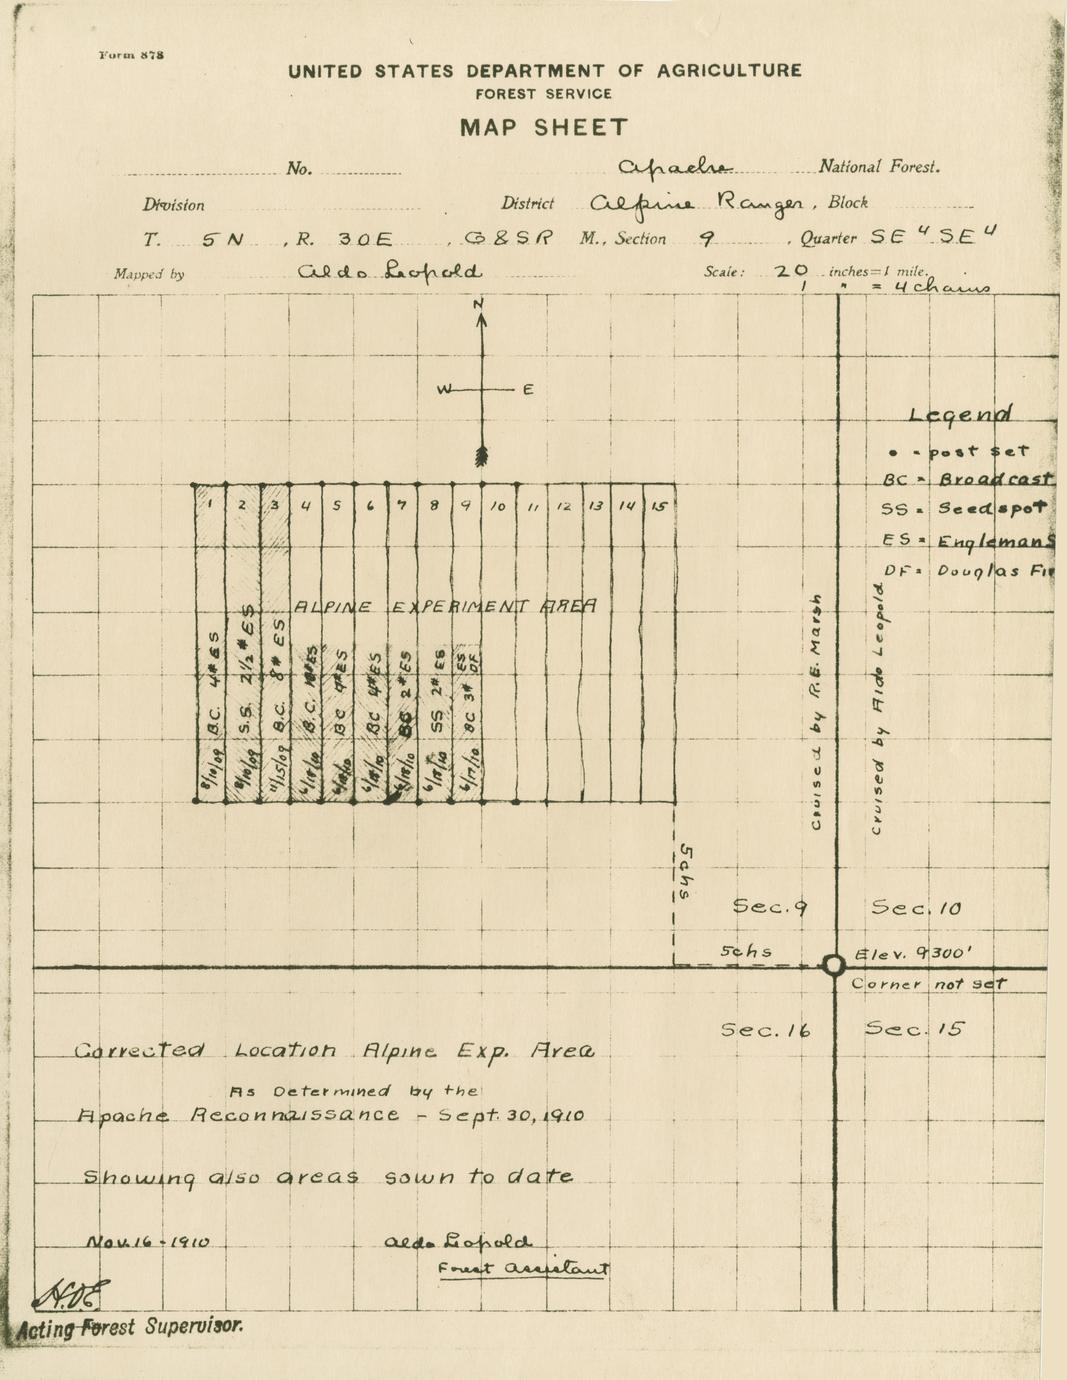 Form 878
UNITED STATES DEPARTMENT OF AGRICULTURE
FOREST SERVICE
MAP SHEET
No. Apache National Forest.
Division District Alpine Ranger, Block
T. 5 N , R. 30E , G & SR M., Section 9 , Quarter SE 4 SE 4
Mapped by Aldo Leopold Scale: 20 inches=1 mile.
1 " = 4 chains
N
W E
Legend
• = post set
BC = Broadcast
SS = Seedspot
ES = Englemans
DF = Douglas Fir
1 2 3 4 5 6 7 8 9 10 11 12 13 14 15
ALPINE EXPERIMENT AREA
8/10/09 B.C. 4# ES
S.S. 2½# ES
11/15/09 B.C. 8# ES
6/18/10 B.C. ES
BC 4# ES
BC 4# ES
6/18/10 2# ES
6/18/10 SS 2# ES
6/17/10 BC 3# ES DF
Cruised by R.E. Marsh
Cruised by Aldo Leopold
5chs
Sec. 9 Sec. 10
5chs Elev. 9300'
Corner not set
Sec. 16 Sec. 15
Corrected Location Alpine Exp. Area
As Determined by the
Apache Reconnaissance - Sept. 30, 1910
Showing also areas sown to date
Nov. 16 - 1910 Aldo Leopold
Forest Assistant
Acting Forest Supervisor.